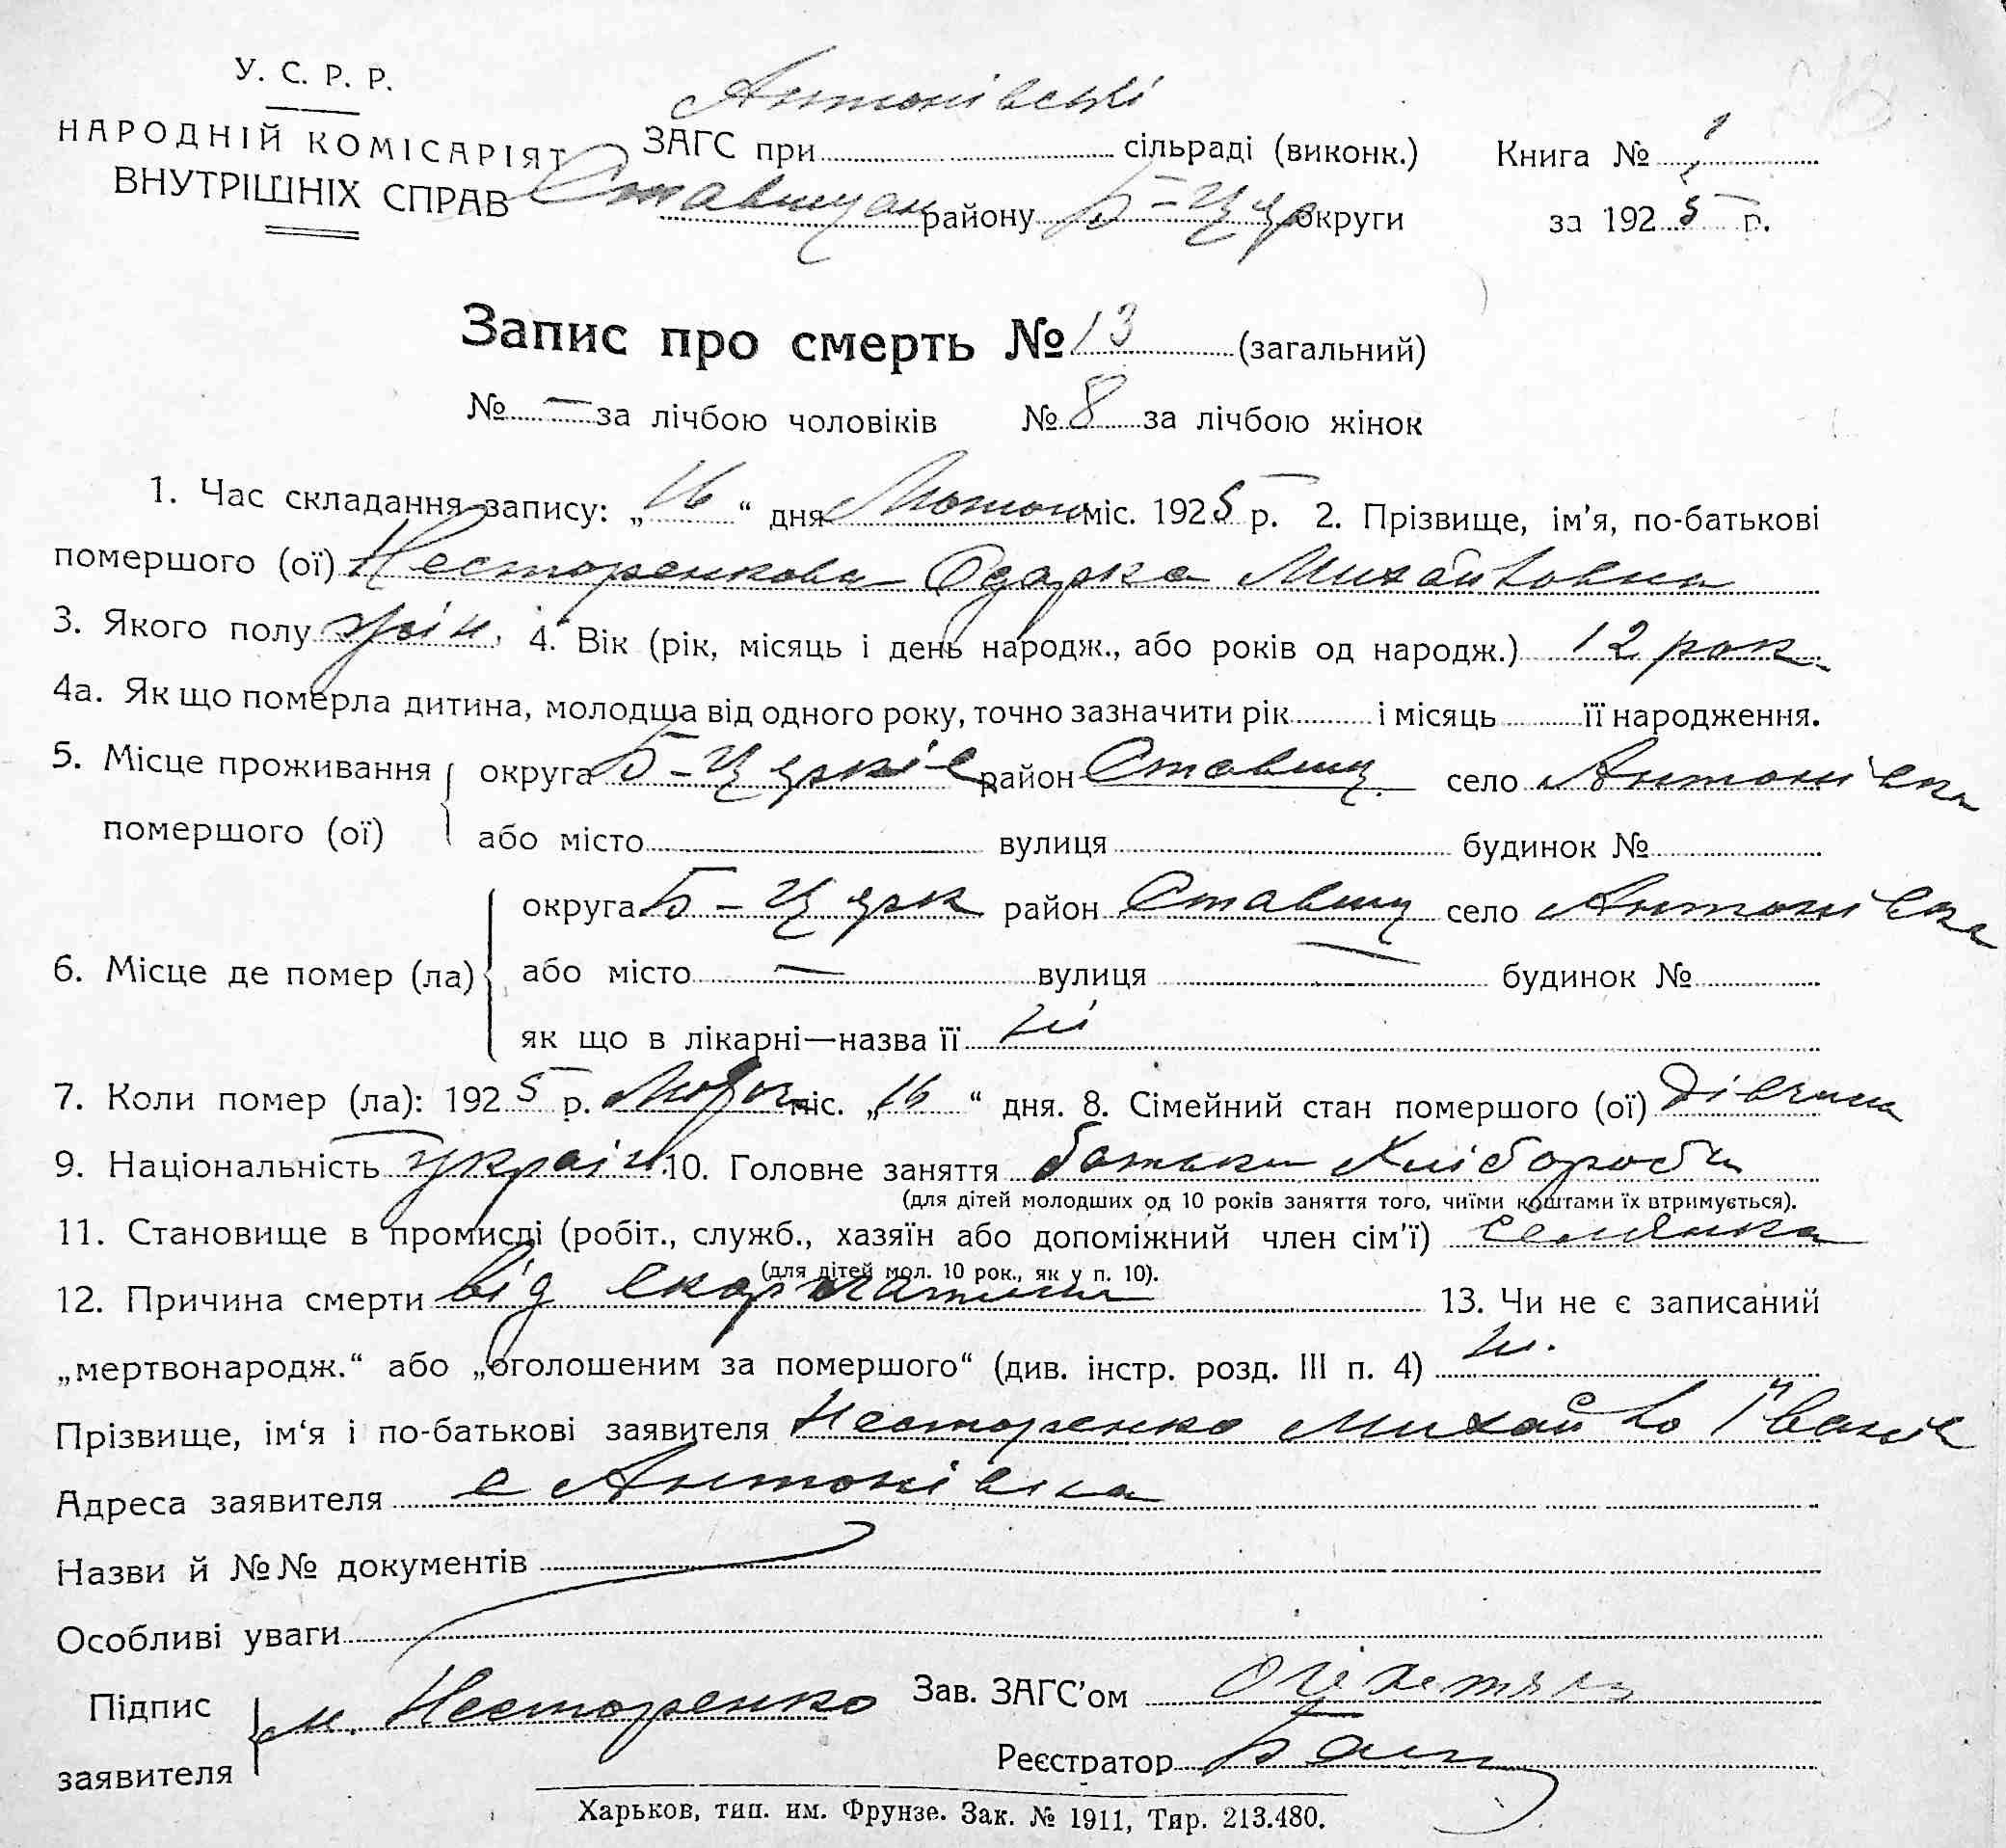 У. С. Р. Р.
НАРОДНІЙ КОМІСАРІЯТ
ВНУТРІШНІХ СПРАВ
ЗАГС при Антонівські сільраді (виконк.)
Ставищан району Б-Церк округи
Книга № 1
за 1925 г.
Запис про смерть № 13 (загальний)
№ — за лічбою чоловіків № 8 за лічбою жінок
1. Час складання запису: „16“ дня Лютого міс. 1925 р. 2. Прізвище, ім'я, по-батькові
помершого (ої) Несторенкова Одарка Михайловна
3. Якого полу жін. 4. Вік (рік, місяць і день народж., або років од народж.) 12 рок
4а. Як що померла дитина, молодша від одного року, точно зазначити рік і місяць її народження.
5. Місце проживання помершого (ої) округа Б-Церків район Ставищ. село Антонівка
або місто вулиця будинок №
6. Місце де помер (ла) округа Б-Церк район Ставищ село Антонівка
або місто — вулиця — будинок №
як що в лікарні—назва її ні
7. Коли помер (ла): 1925 р. Лютого міс. „16“ дня. 8. Сімейний стан помершого (ої) дівчина
9. Національність україн. 10. Головне заняття батьки хлібороби
(для дітей молодших од 10 років заняття того, чиїми коштами їх втримується).
11. Становище в промислі (робіт., служб., хазяїн або допоміжний член сім'ї) селянка
(для дітей мол. 10 рок., як у п. 10).
12. Причина смерти від скарлатини 13. Чи не є записаний
„мертвонародж.“ або „оголошеним за помершого“ (див. інстр. розд. III п. 4) ні.
Прізвище, ім'я і по-батькові заявителя Несторенко Михайло Іванів
Адреса заявителя с Антонівка
Назви й №№ документів
Особливі уваги
Підпис заявителя м. Несторенко
Зав. ЗАГС'ом
Реєстратор
Харьков, тип. им. Фрунзе. Зак. № 1911, Тир. 213.480.